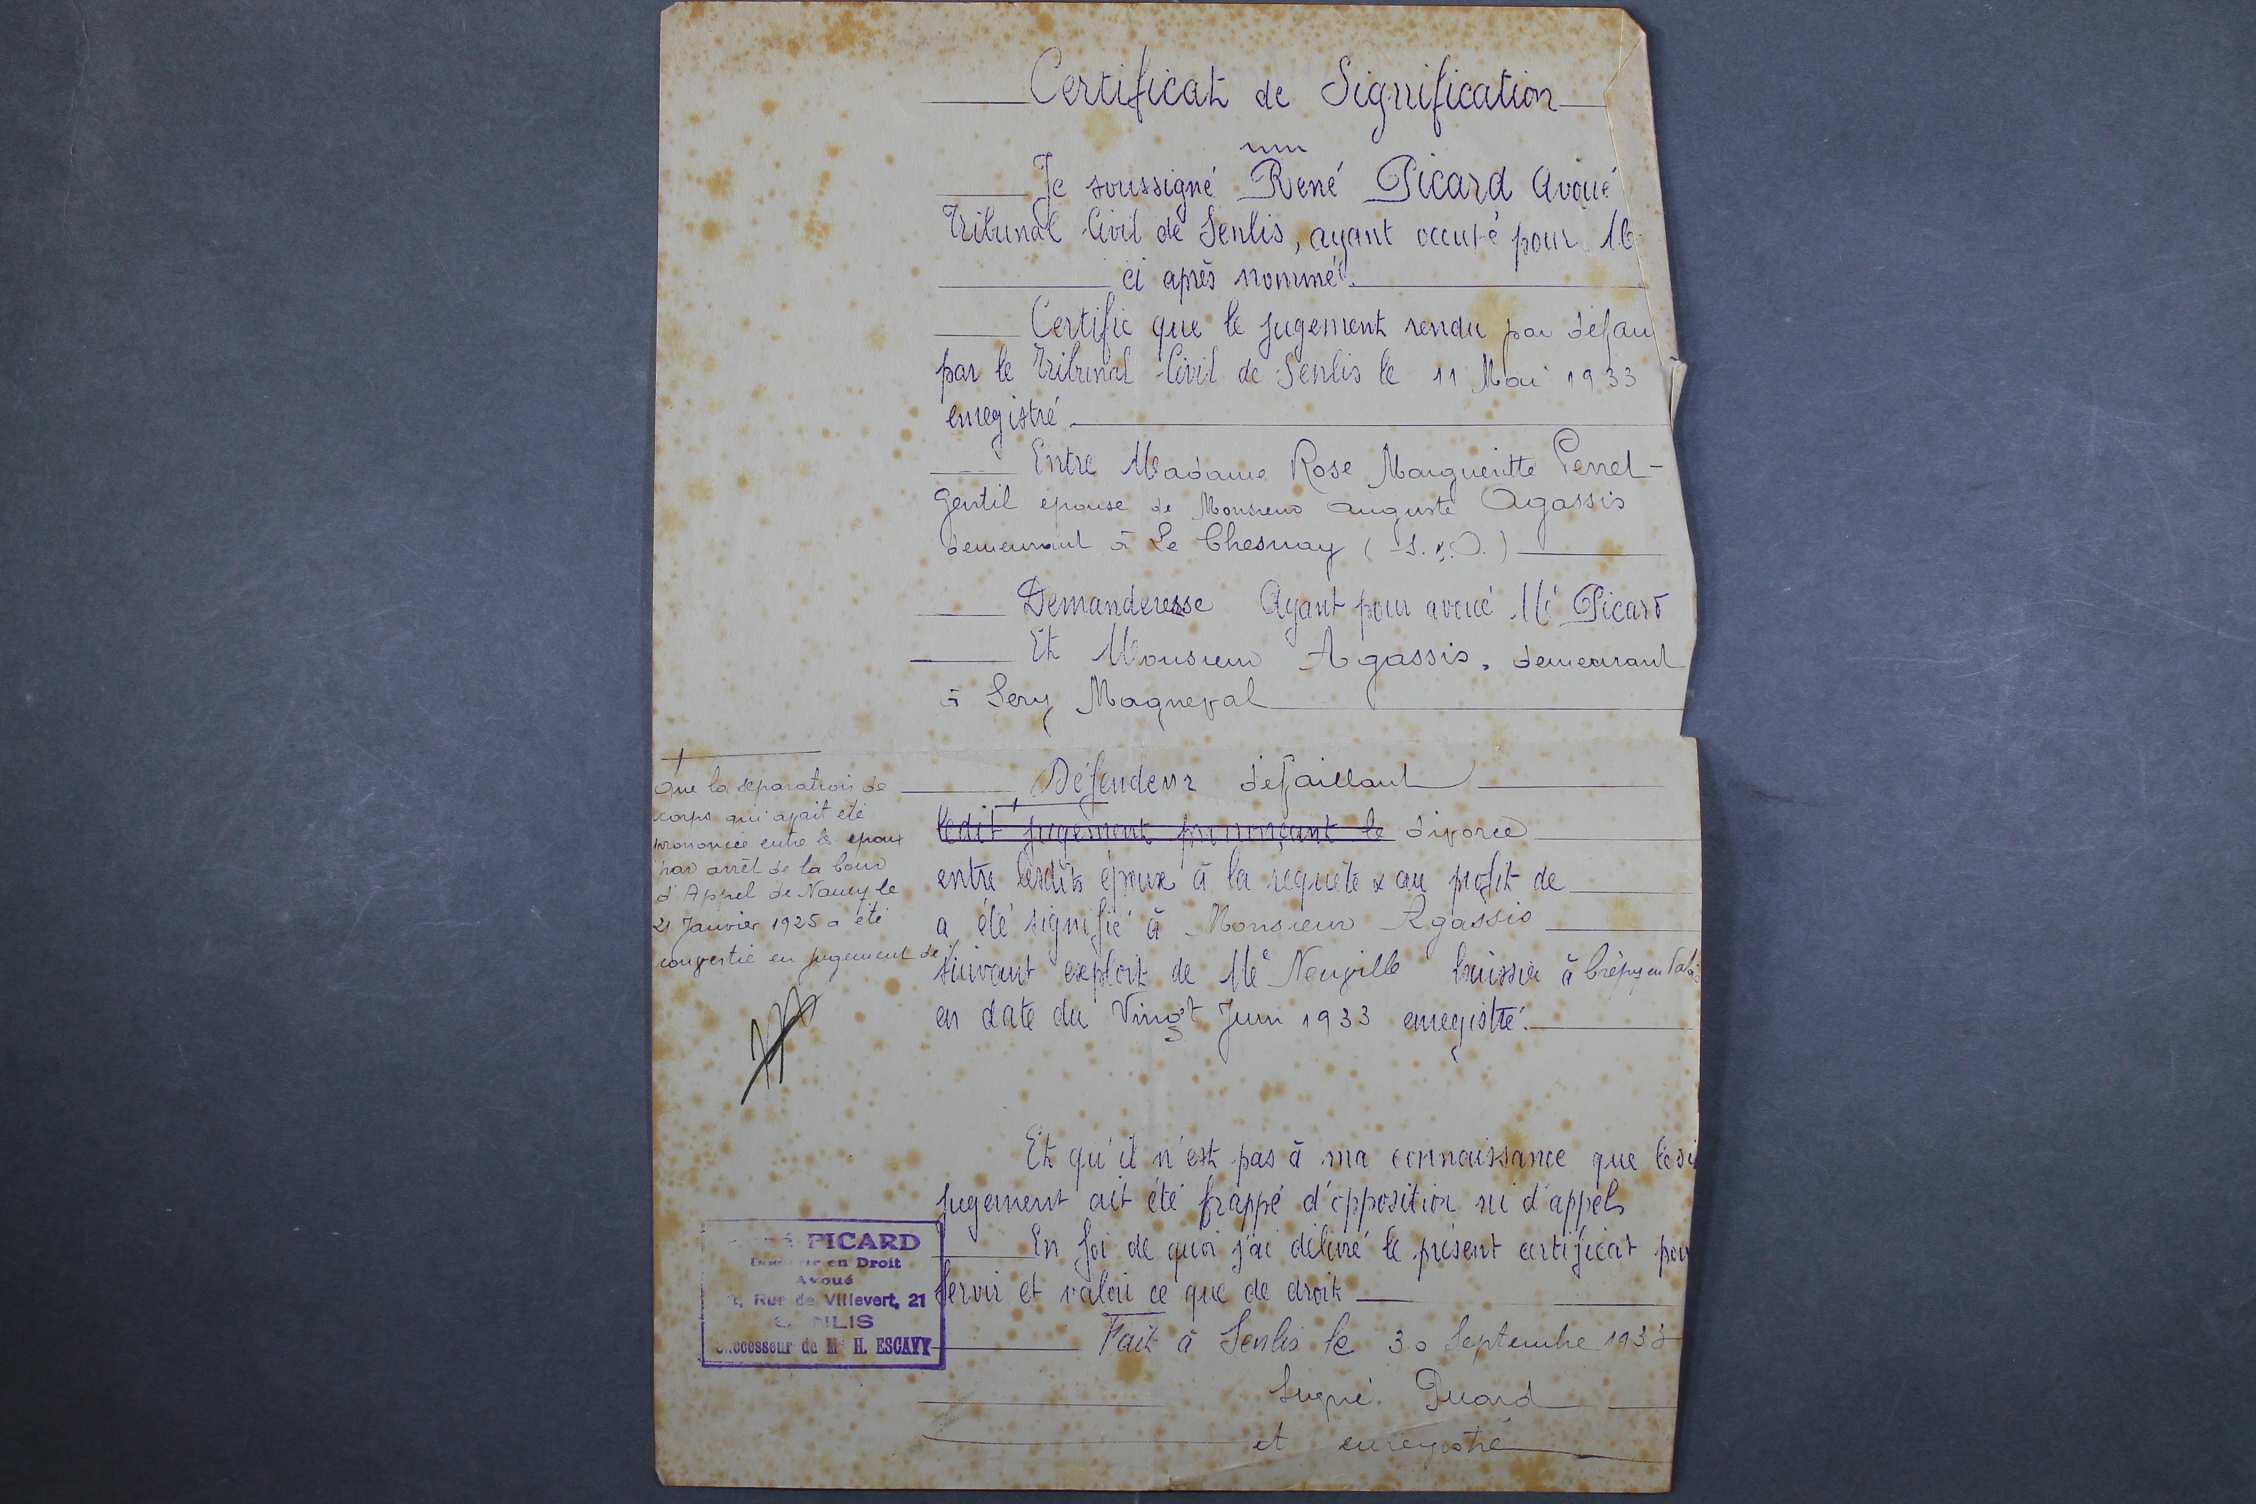 Certificat de Signification
Je soussigné René Picard Avoué
Tribunal Civil de Senlis, ayant occupé pour
ci après nommé.
Certifie que le jugement rendu par défau
par le Tribunal Civil de Senlis le 11 Mai 1933
enregistré
Entre Madame Rose Marguerite Perret-
Gentil épouse de Monsieur Auguste Agassis
demeurant à Le Chesnay (S. & O.)
Demanderesse Ayant pour avoué Me Picard
Et Monsieur Agassis, demeurant
à Sery Magneval
Défendeur défaillant
ledit jugement prononçant le divorce
entre lesdits époux à la requête & au profit de
a été signifié à Monsieur Agassis
suivant exploit de Me Neuville huissier à Crépy en Valois
en date du Vingt Juin 1933 enregistré.
que la séparation de
corps qui avait été
prononcée entre les époux
par arrêt de la Cour
d'Appel de Nancy le
21 Janvier 1925 a été
convertie en jugement de
Et qu'il n'est pas à ma connaissance que ledi
jugement ait été frappé d'opposition ni d'appel
En foi de quoi j'ai délivré le présent certificat pour
servir et valoir ce que de droit
Fait à Senlis le 30 Septembre 1933
Signé. Picard
et enregistré
PICARD
en Droit
Avoué
Rue de Villevert, 21
Successeur de Me H. ESCAVY